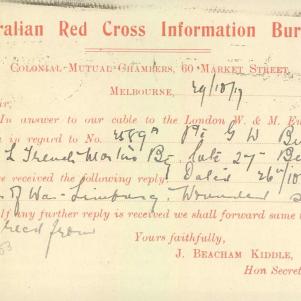 ralian Red Cross Information Bur
COLONIAL MUTUAL CHAMBERS, 60 MARKET STREET,
MELBOURNE, 29/10/17
ir,
In answer to our cable to the London W. & M. En
in regard to No. Pte G W Bu
L Trench Mortars By. late 27th B
we received the following reply Dated 26th/10
of War Limburg. Wounded
If any further reply is received we shall forward same
from
Yours faithfully,
J. BEACHAM KIDDLE,
Hon Secret